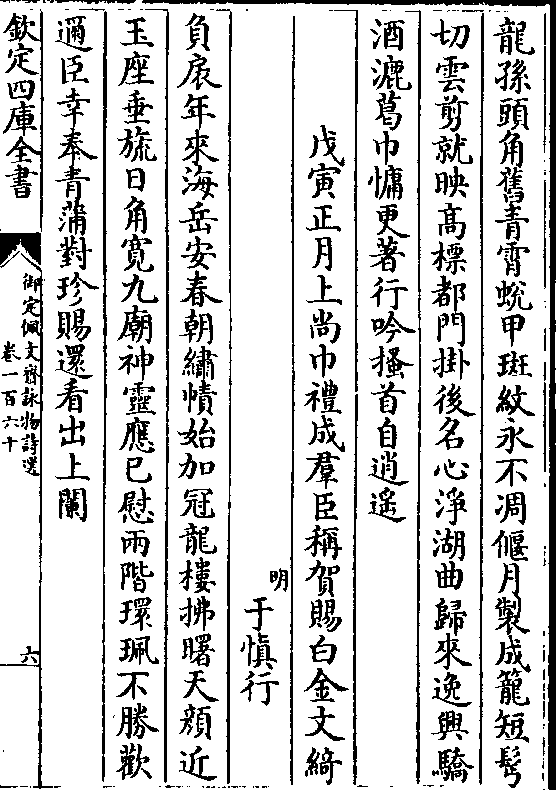 龍孫頭角舊青霄蛻甲斑紋永不凋偃月製成籠短髩
切雲剪就映高標都門掛後名心淨湖曲歸來逸興驕
酒漉葛巾慵更著行吟搔首自逍遙
戊寅正月上尚巾禮成羣臣稱賀賜白金文綺
明
于慎行
負扆年來海岳安春朝繡幘始加冠龍樓拂曙天顔近
玉座垂旒日角寛九廟神靈應已慰兩階環珮不勝歡
邇臣幸奉青蒲對珍賜還看出上闌
欽定四庫全書
御定佩文齋詠物詩選
卷一百六十
六